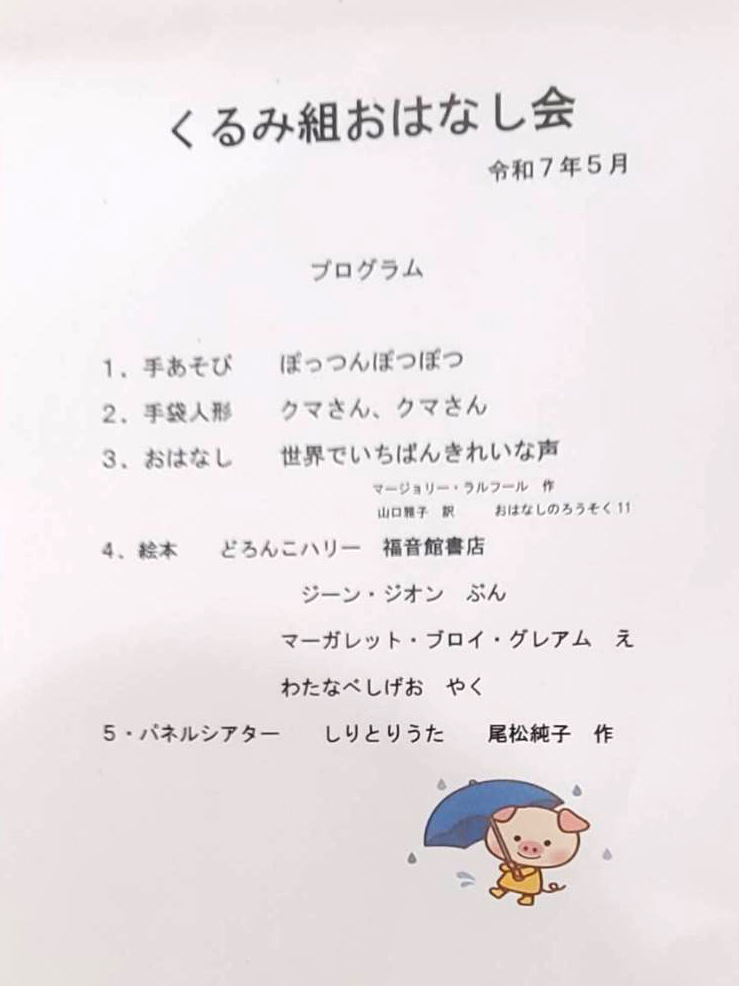 くるみ組おはなし会
令和7年5月
プログラム
1．手あそび　　ぽっつんぽつぽつ
2．手袋人形　　クマさん、クマさん
3．おはなし　　世界でいちばんきれいな声
マージョリー・ラルフール　作
山口雅子　訳　　おはなしのろうそく 11
4．絵本　　どろんこハリー　福音館書店
ジーン・ジオン　ぶん
マーガレット・ブロイ・グレアム　え
わたなべしげお　やく
5・パネルシアター　　しりとりうた　　尾松純子　作